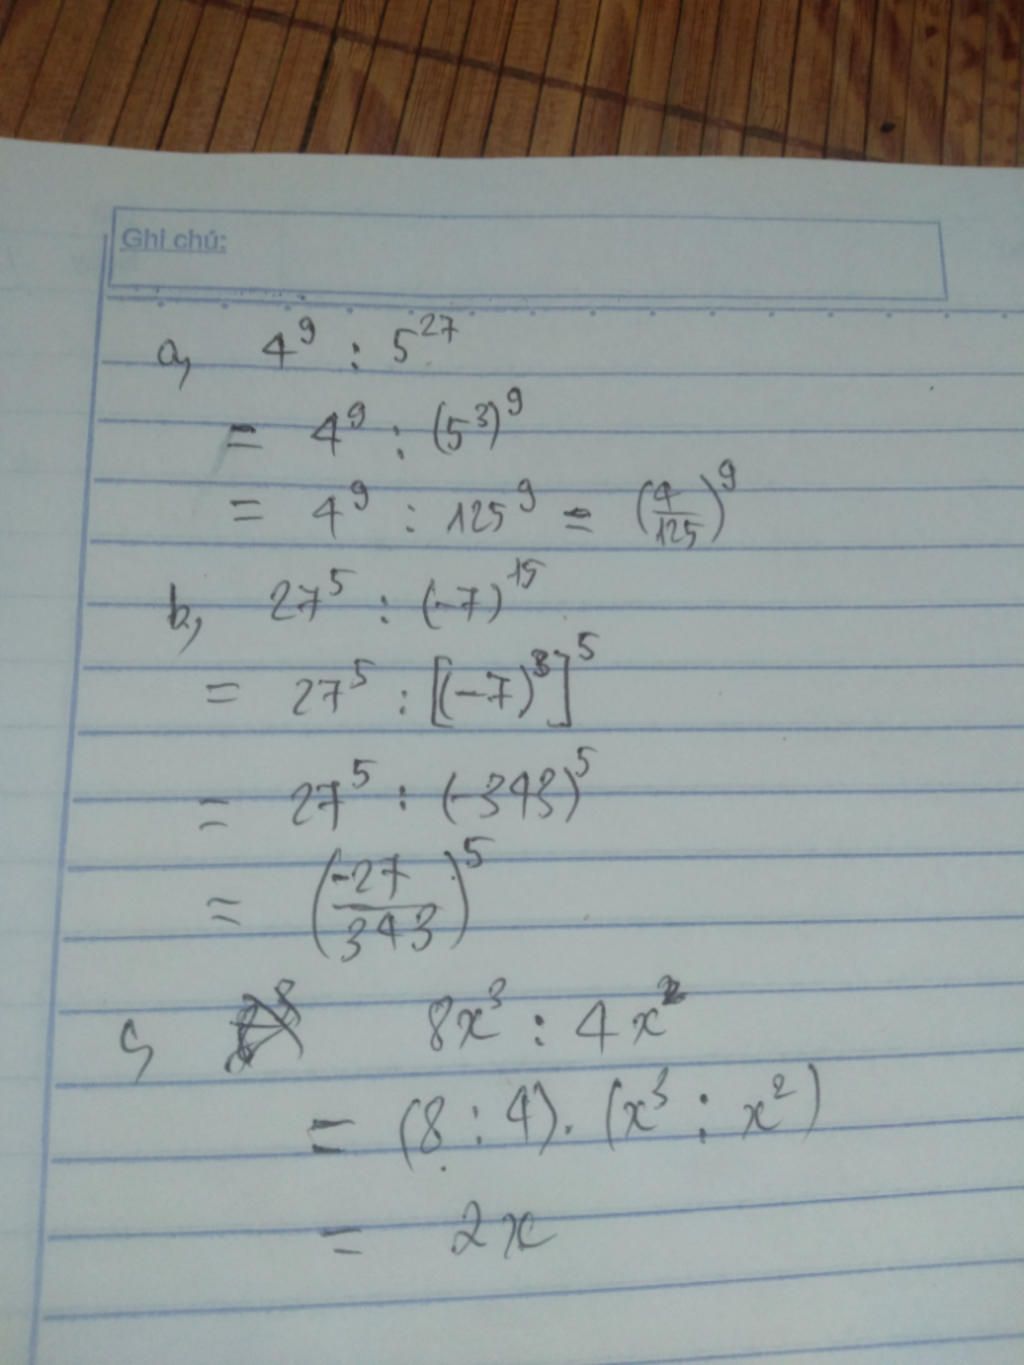 Ghi chú:
a, 4⁹ : 5²⁷
= 4⁹ : (5³)⁹
= 4⁹ : 125⁹ = (4/125)⁹
b, 27⁵ : (-7)¹⁵
= 27⁵ : [(-7)³]⁵
= 27⁵ : (-343)⁵
= (-27/343)⁵
c, 8x³ : 4x²
= (8 : 4). (x³ : x²)
= 2x